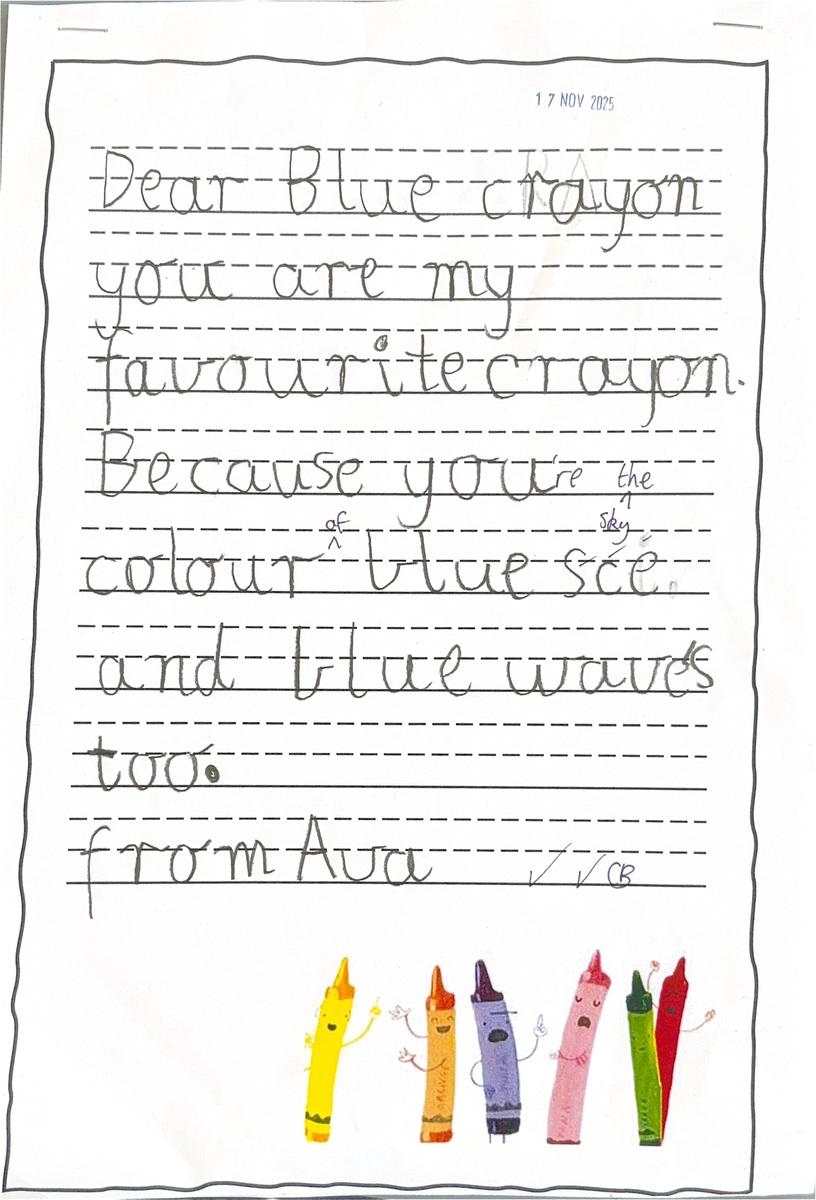 17 NOV 2025
Dear Blue crayon
you are my
favourite crayon.
Because you're the
colour of blue sce. sky
and blue waves
too.
from Ava
CB